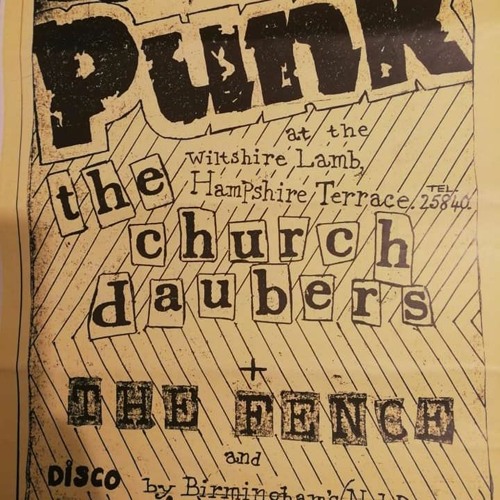 Punk
at the
Wiltshire Lamb,
Hampshire Terrace. TEL. 25840
the
church
daubers
+
THE FENCE
and
DISCO by Birmingham's